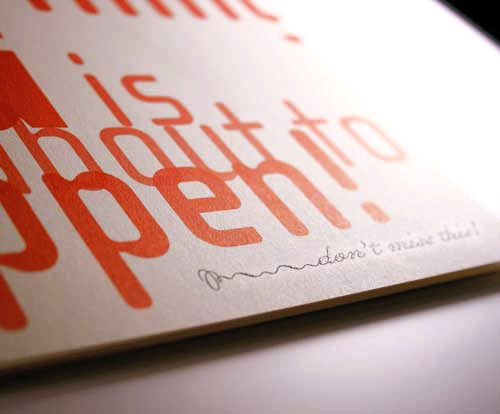 is
about to
ppen!
don't miss this!